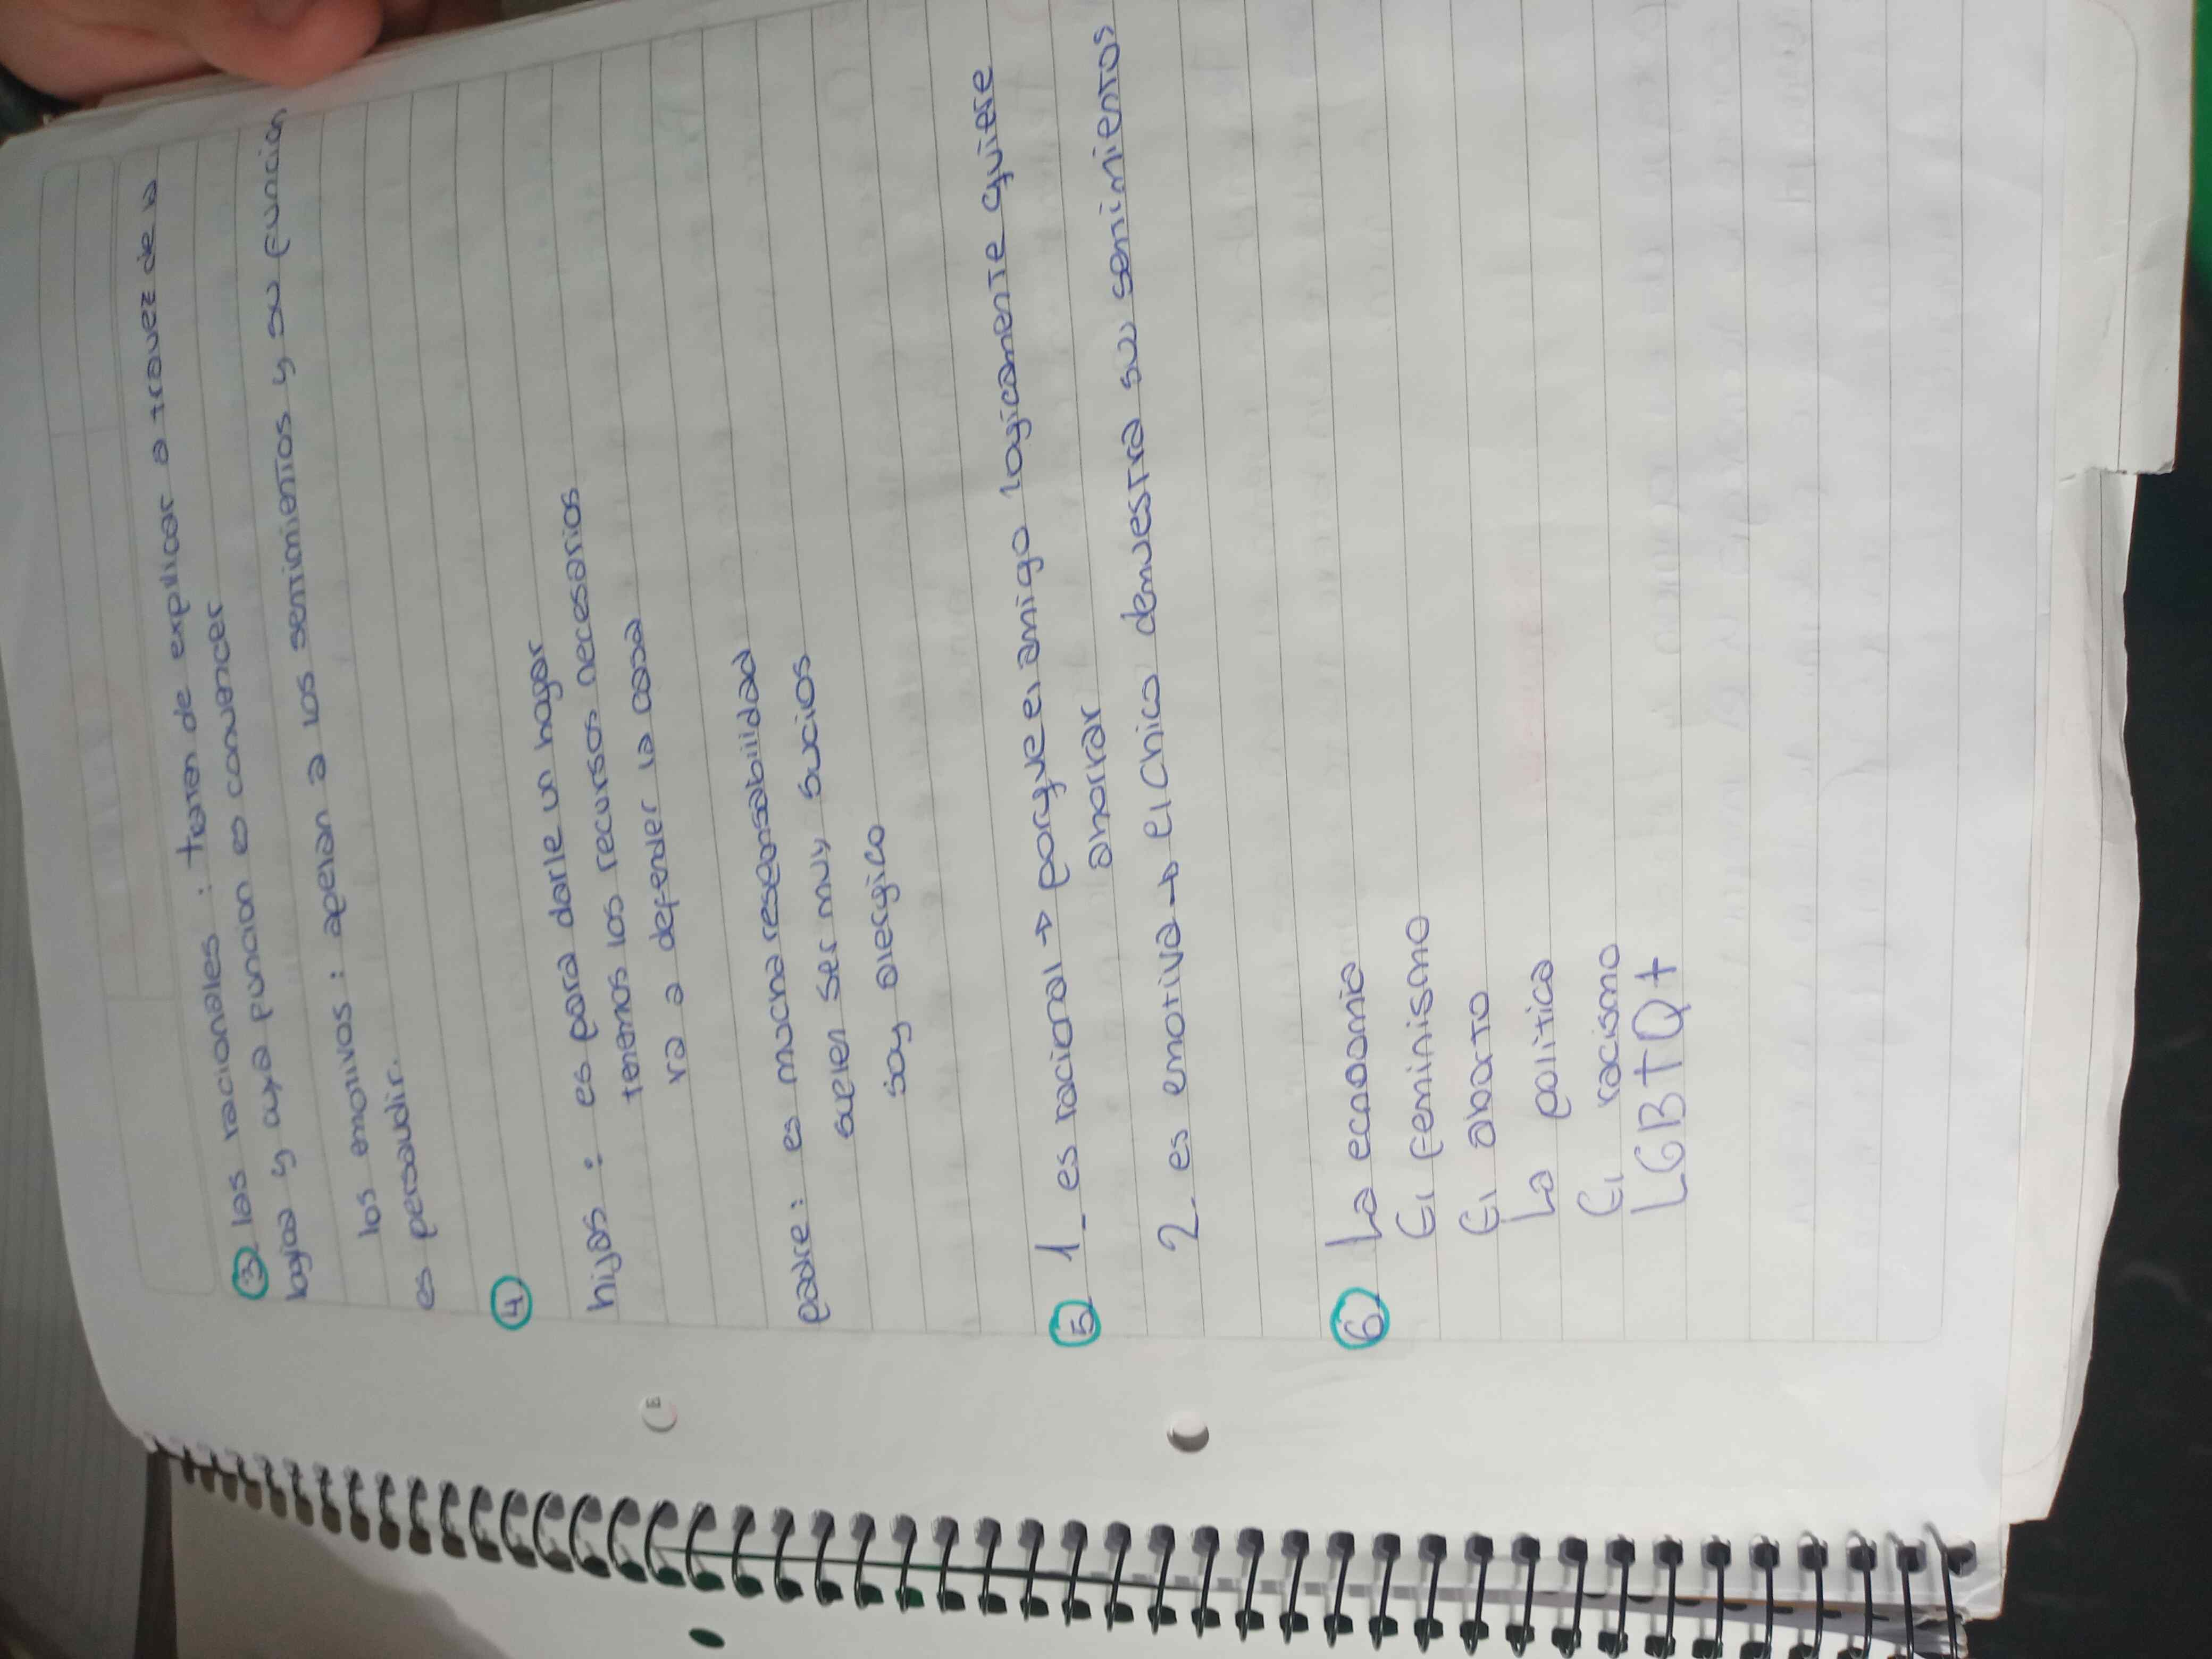 ③ los racionales : traten de explicar a travez de la
logica y cuya puncion es convencer
los emotivos : apelan a los sentimientos y su funcion
es persaudir.
④
hijos : es para darle un hogar
tenemos los recursos necesarios
va a defender la casa
padre : es mucha responsabilidad
suelen ser muy sucios
soy alergico
⑤ 1- es racional → porque el amigo logicamente quiere
ahorrar
2- es emotiva → el chico demuestra sus sentimientos
⑥ La economia
El feminismo
El aborto
La politica
El racismo
LGBTQ+